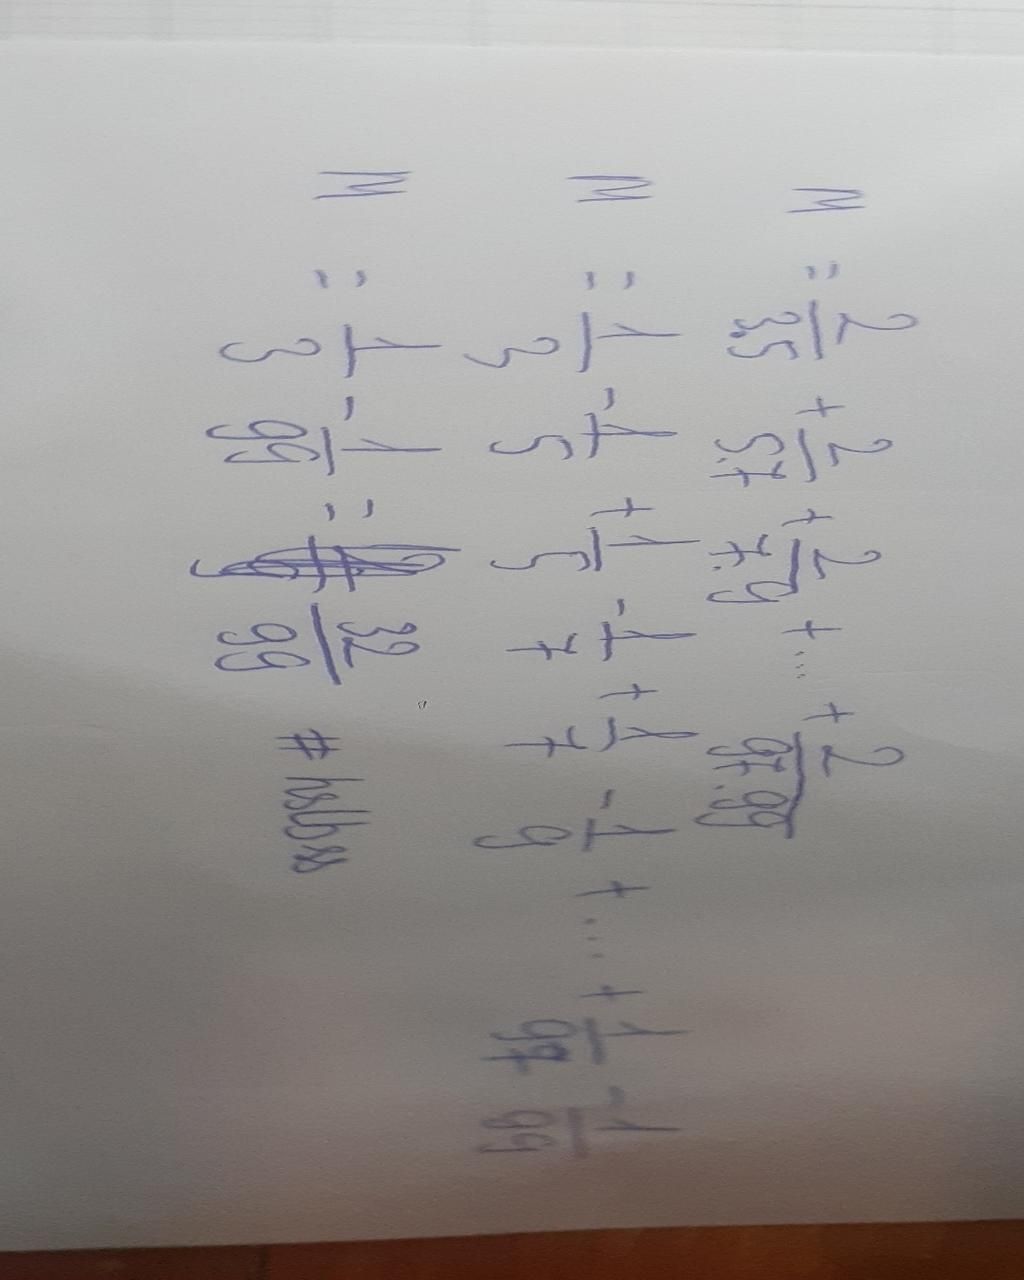 M = 2/3.5 + 2/5.7 + 2/7.9 + ... + 2/97.99
M = 1/3 - 1/5 + 1/5 - 1/7 + 1/7 - 1/9 + ... + 1/97 - 1/99
M = 1/3 - 1/99 = 32/99 #hslbss